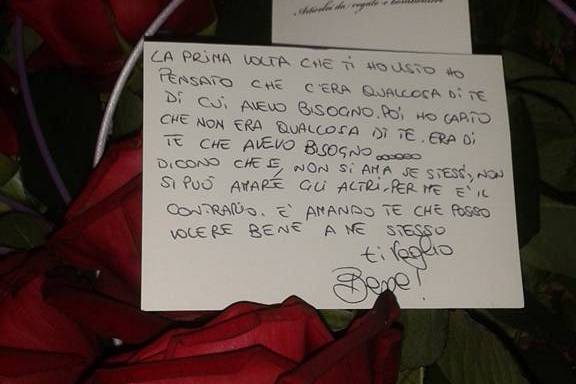 Articoli da regalo e bomboniere
LA PRIMA VOLTA CHE TI HO VISTO HO
PENSATO CHE C'ERA QUALCOSA DI TE
DI CUI AVEVO BISOGNO. POI HO CAPITO
CHE NON ERA QUALCOSA DI TE. ERA DI
TE CHE AVEVO BISOGNO......
DICONO CHE SE NON SI AMA SE STESSI, NON
SI PUÒ AMARE GLI ALTRI. PER ME E' IL
CONTRARIO. E' AMANDO TE CHE POSSO
VOLERE BENE A ME STESSO
ti voglio
Bene!